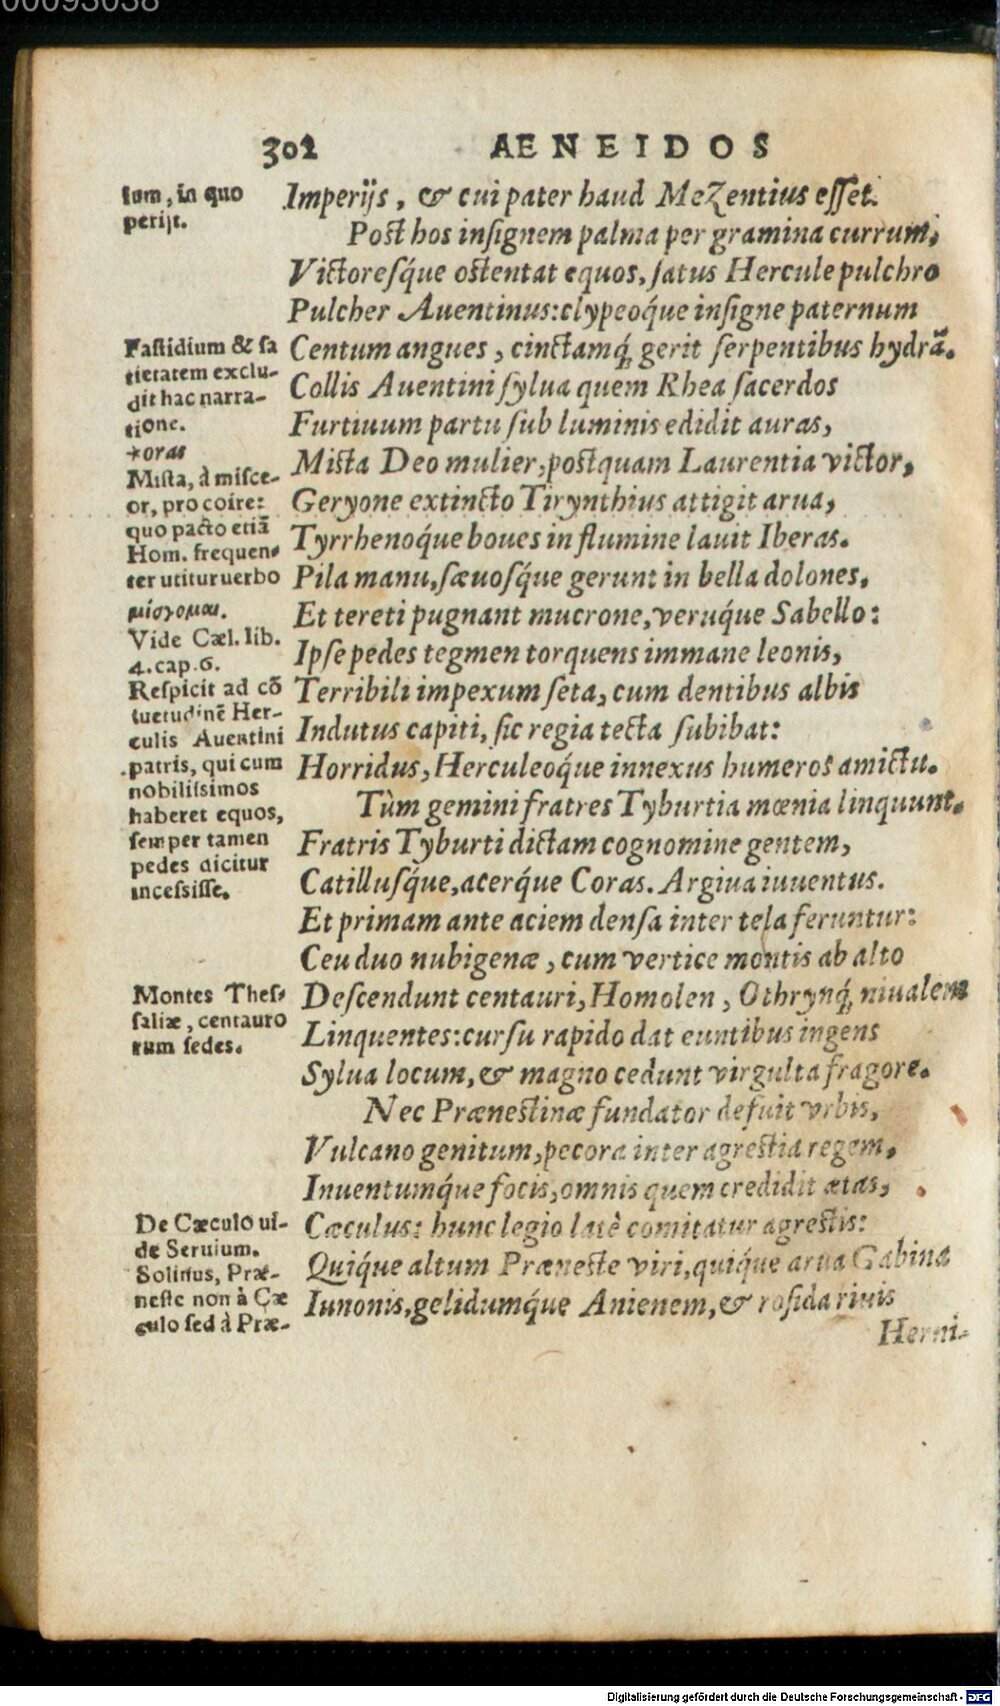 00093038
302 AENEIDOS
sum, in quo
perijt.
Imperijs, & cui pater haud Mezentius esset.
Post hos insignem palma per gramina currum,
Victoresq́ue ostentat equos, satus Hercule pulchro
Pulcher Auentinus: clypeoq́ue insigne paternum
Fastidium & sa
tietatem exclu-
dit hac narra-
tione.
*oras
Mista, à misce-
or, pro coire:
quo pacto etiã
Hom. frequen-
ter utitur uerbo
μίσγομαι.
Vide Cæl. lib.
4. cap. 6.
Respicit ad cõ
suetudinẽ Her-
culis Auentini
patris, qui cum
nobilissimos
haberet equos,
semper tamen
pedes dicitur
incessisse.
Centum angues, cinctamq́; gerit serpentibus hydrã.
Collis Auentini sylua quem Rhea sacerdos
Furtiuum partu sub luminis edidit auras,
Mista Deo mulier, postquam Laurentia victor,
Geryone extincto Tirynthius attigit arua,
Tyrrhenoq́ue boues in flumine lauit Iberas.
Pila manu, sæuosq́ue gerunt in bella dolones,
Et tereti pugnant mucrone, veruq́ue Sabello:
Ipse pedes tegmen torquens immane leonis,
Terribili impexum seta, cum dentibus albis
Indutus capiti, sic regia tecta subibat:
Horridus, Herculeoq́ue innexus humeros amictu.
Tùm gemini fratres Tyburtia mœnia linquunt,
Fratris Tyburti dictam cognomine gentem,
Catillusq́ue, acerq́ue Coras. Argiua iuuentus.
Et primam ante aciem densa inter tela feruntur:
Ceu duo nubigenæ, cum vertice montis ab alto
Montes Thes-
saliæ, centauro
rum sedes.
Descendunt centauri, Homolen, Othrynq́; niualem
Linquentes: cursu rapido dat euntibus ingens
Sylua locum, & magno cedunt virgulta fragore.
Nec Prænestinæ fundator defuit vrbis,
Vulcano genitum, pecora inter agrestia regem,
Inuentumq́ue focis, omnis quem credidit ætas,
De Cæculo ui-
de Seruium.
Solinus, Præ-
neste non à Cæ
culo sed à Præ-
Cæculus: hunc legio latè comitatur agrestis:
Quiq́ue altum Præneste viri, quiq́ue arua Gabinæ
Iunonis, gelidumq́ue Anienem, & rosida riuis
Herni-
Digitalisierung gefördert durch die Deutsche Forschungsgemeinschaft - DFG